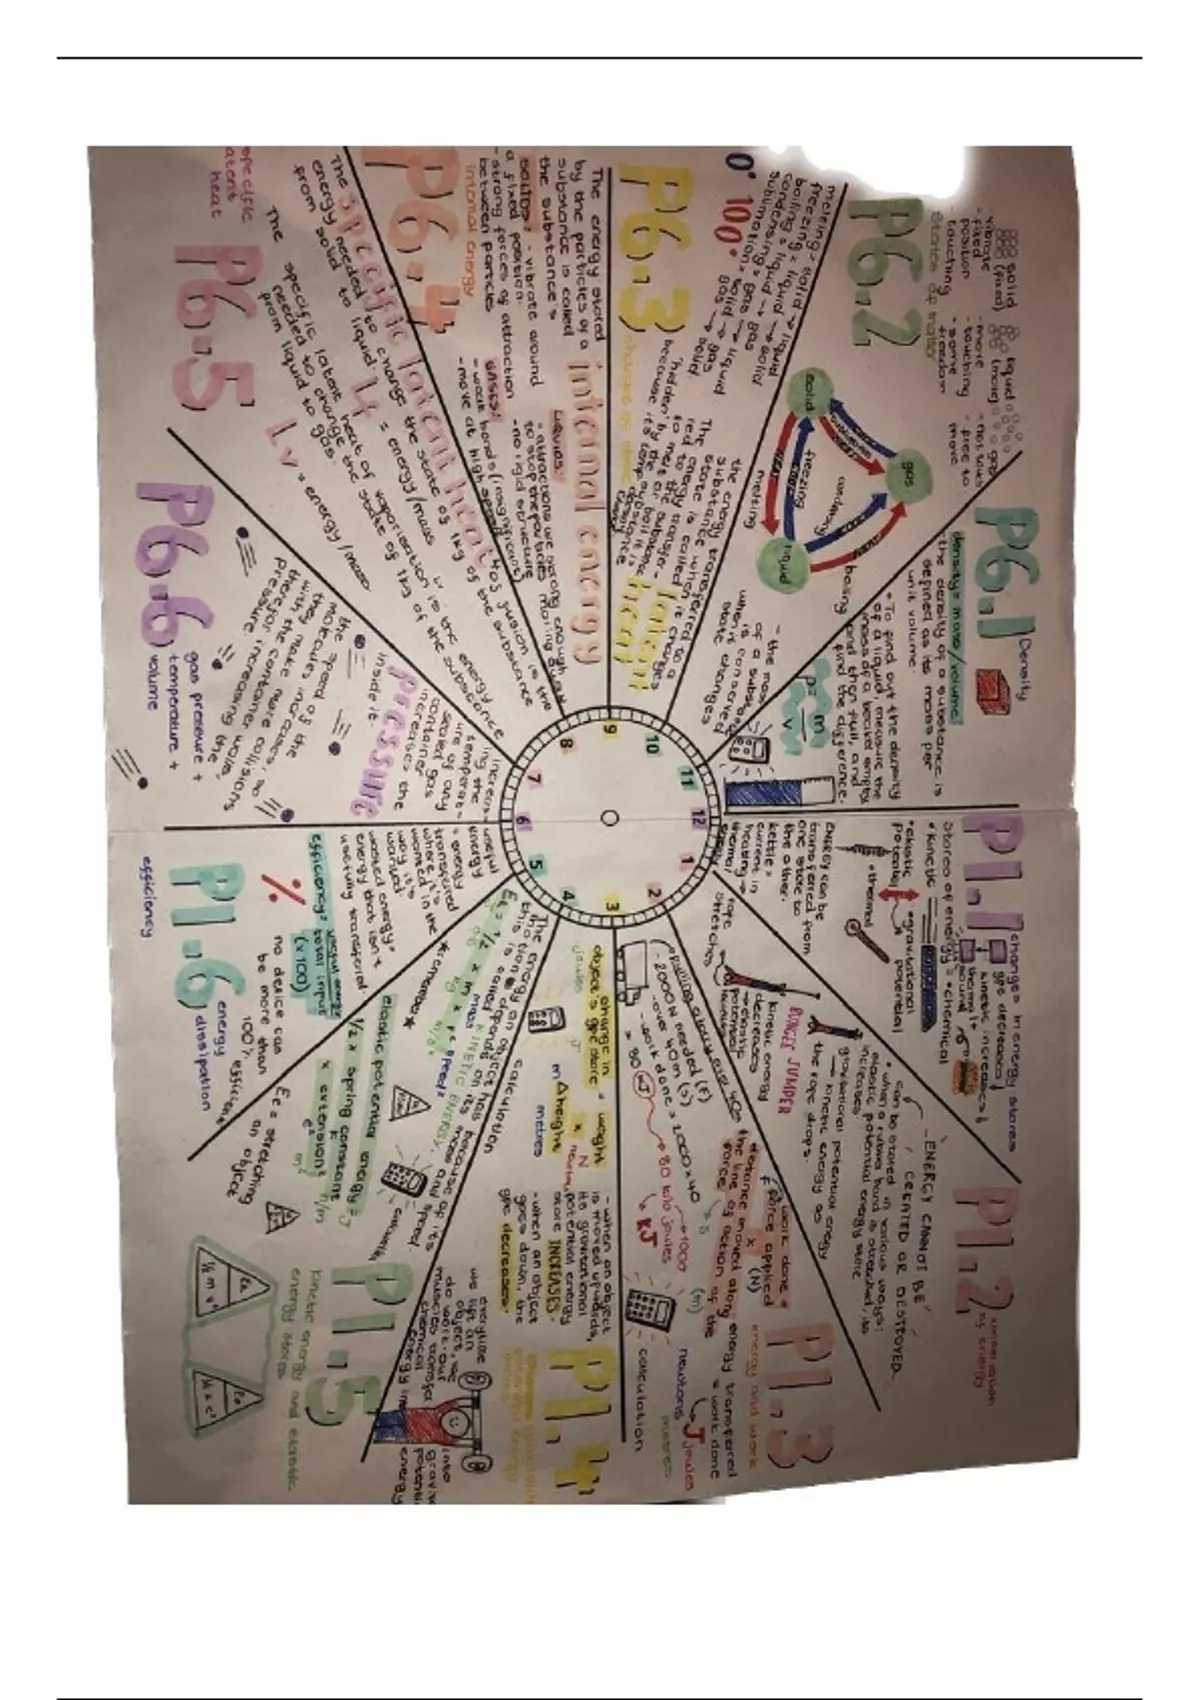 P1.1
changes in energy stores
gpe decreases ↓
kinetic increases ↑
thermal +
sound
stores of energy =
• kinetic
• chemical
• elastic
potential
• gravitational
potential
• thermal
ENERGY can be
transferred from
one store to
the other.
kettle =
current in
heating →
thermal
energy
P1.2
conservation
of energy
ENERGY CANNOT BE
CREATED OR DESTROYED
can be stored in various ways:
• when a rubber band is stretched, its
elastic potential energy store
increases.
gravitational potential energy
→ kinetic energy as
the rope drops.
BUNGEE JUMPER
kinetic energy
decreases
→ elastic
potential
increases
rope
stretches
P1.3
energy and work
energy transferred
= work done
work done =
F force applied (N)
x
distance moved along
the line of action of the
force
(m)
J joules
newtons
metres
calculation
- 2000N needed (F)
- over 40m (s)
- work done = 2000 x 40
= 80 kJ → 80 kilo joules
→ 1000
kJ
P1.4
- when an object
is moved upwards,
its gravitational
potential energy
store INCREASES.
- when an object
goes down, the
gpe decreases.
change in
object's gpe store = weight
x
Δ height
joules
J
N
newtons
m
metres
calculation
everytime
we lift an
object, we
do work. our
muscles transfer
chemical
energy
into
P1.5
kinetic energy and elastic
energy stores
The energy an object has because of its
motion depends on its mass and speed.
this is called KINETIC ENERGY.
Ek = 1/2 x m x v²
mass
speed²
kg
m/s²
★remember★
calculation
elastic potential energy =
1/2 x spring constant
x extension²
J
N/m
e²
m²
Ee = stretching
an object
Ek
½ m v²
Ee
½ k e²
P1.6
energy
dissipation
efficiency
useful
energy
= energy
transferred
where it's
wanted in the
way it's
wanted.
wasted energy =
energy that isn't
usefully transferred.
efficiency = useful energy
total input
(x100)
%
no device can
be more than
100% efficient
P6.1
Density
density = mass/volume
the density of a substance is
defined as its mass per
unit volume.
• To find out the density
of a liquid, measure the
mass of a beaker empty
and then full, and
find the difference.
ρ = m
v
- the mass
of a substance
is conserved
when it
state changes
P6.2
states of matter
solid
(fixed)
- vibrate
- fixed
position
- touching
liquid
(move)
- move
- touching
- some
freedom
gas
- not touch
- free to
move
solid
gas
liquid
freezing
melting
condensing
boiling
P6.3
changes of state
melting = solid → liquid
freezing = liquid → solid
boiling = liquid → gas
condensing = gas → liquid
sublimation = solid → gas
0° 100°
the energy transferred to a
substance when it changes
state is called latent
heat
The energy
'hidden' by the substance
because its temp
P6.4
internal energy
The energy stored
by the particles of a
substance is called
the substance's
internal energy
SOLIDS:
- vibrate around
a fixed position.
- strong forces of attraction
between particles
LIQUIDS:
- attractions are strong enough
to stop the particles moving away
- no rigid structure
GASES:
- weak bonds (insignificant)
- move at high speed
P6.5
specific
latent
heat
The specific latent heat of fusion is the
energy needed to change the state of 1kg of the substance
from solid to liquid.
Lf = energy/mass
The specific latent heat of vaporisation is the energy
needed to change the state of 1kg of the substance
from liquid to gas.
Lv = energy/mass
P6.6
gas pressure +
temperature +
volume
increas-
ing the
temperat-
ure of any
sealed gas
container
increases the
pressure
inside it.
the speed of the
molecules increases, so
they make more collisions
with the container walls,
therefor increasing the
pressure
1
2
3
4
5
6
7
8
9
10
11
12